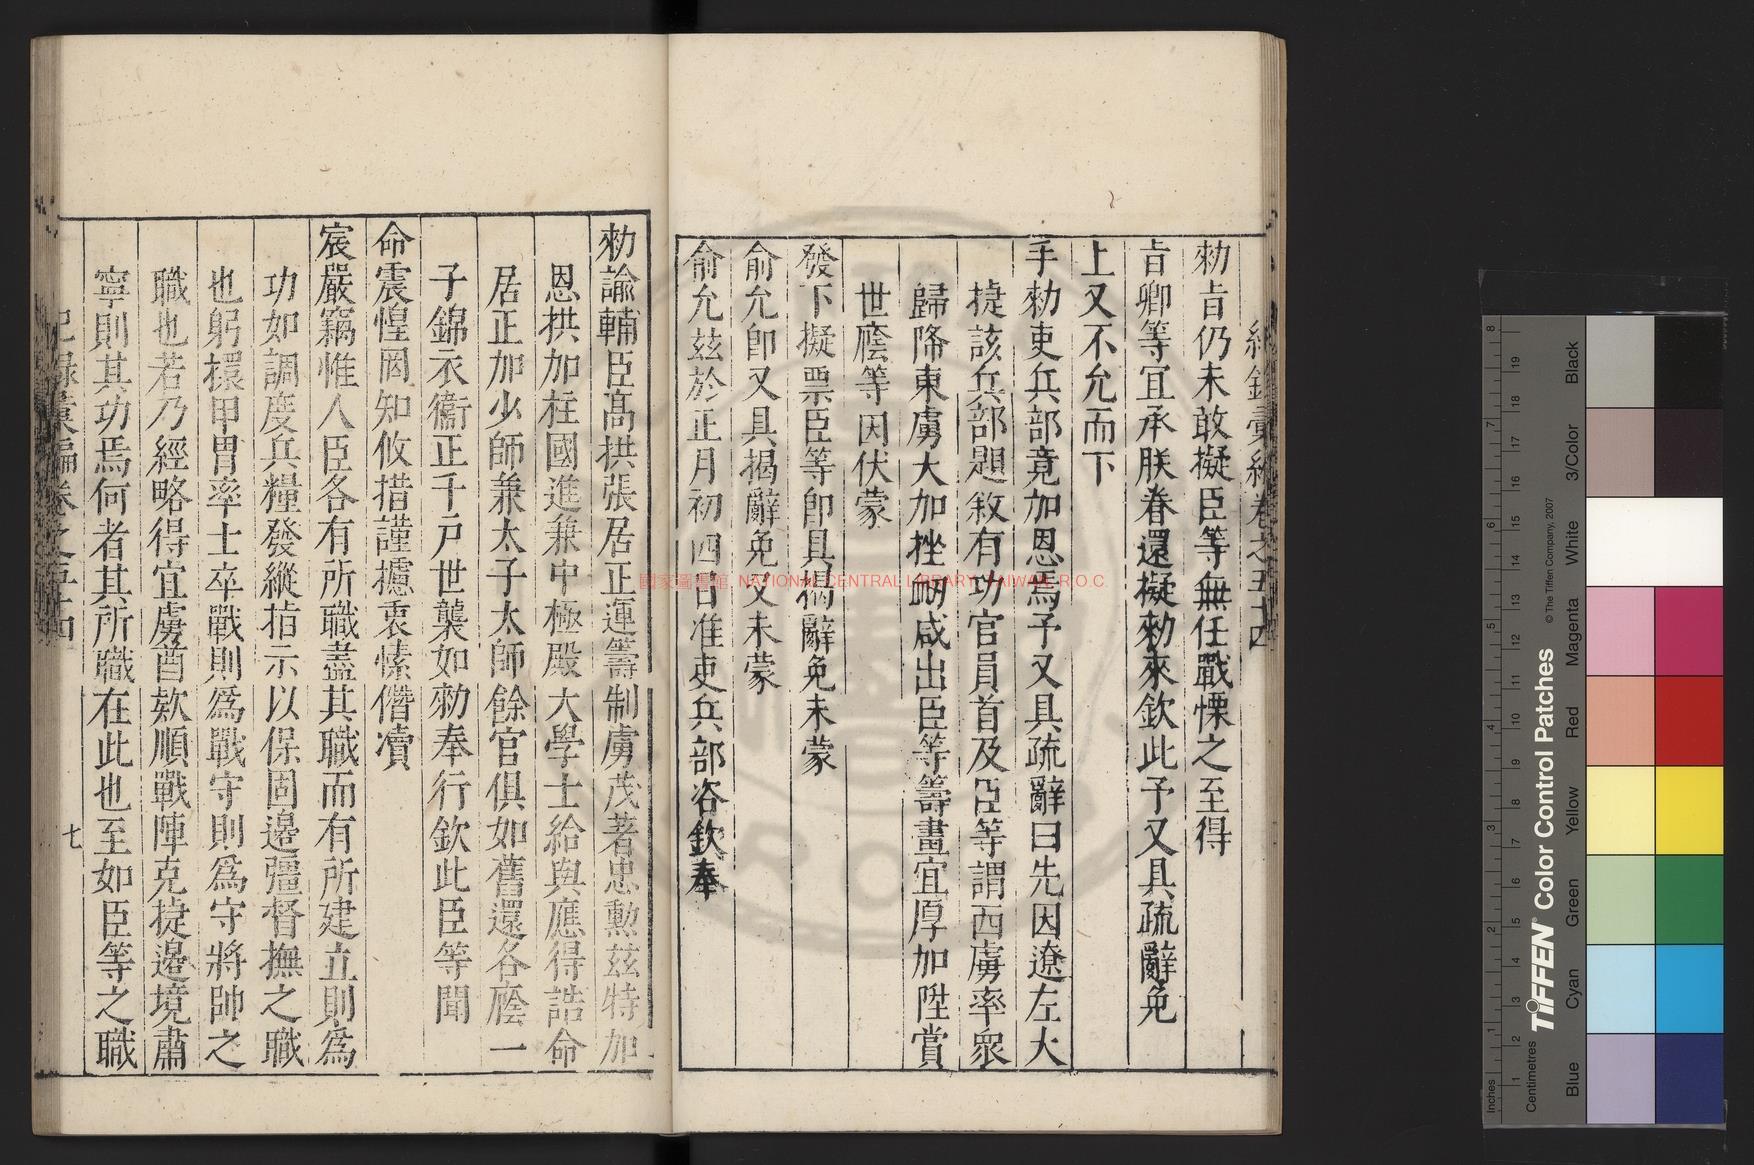 紀錄彙編卷之五十四
勑旨仍未敢擬臣等無任戰慄之至得
旨卿等宜承朕眷還擬勑來欽此予又具疏辭免
上又不允而下
手勑吏兵部竟加恩焉予又具疏辭曰先因遼左大
捷該兵部題敘有功官員首及臣等謂西虜率衆
歸降東虜大加挫衂咸出臣等籌畫宜厚加陞賞
世廕等因伏蒙
發下擬票臣等卽具揭辭免未蒙
俞允卽又具揭辭免又未蒙
俞允茲於正月初四日准吏兵部咨欽奉
勑諭輔臣高拱張居正運籌制虜茂著忠勲茲特加
恩拱加柱國進兼中極殿大學士給與應得誥命
居正加少師兼太子太師餘官俱如舊還各廕一
子錦衣衞正千戶世襲如勑奉行欽此臣等聞
命震惶罔知攸措謹攄衷愫僭凟
宸嚴竊惟人臣各有所職盡其職而有所建立則爲
功如調度兵糧發縱指示以保固邊疆督撫之職
也躬擐甲冑率士卒戰則爲戰守則爲守將帥之
職也若乃經略得宜虜酋欵順戰陣克捷邊境肅
寧則其功焉何者其所職在此也至如臣等之職
紀錄彙編卷之五十四
七
國家圖書館 NATIONAL CENTRAL LIBRARY, TAIWAN, R.O.C
Inches
Centimetres
TIFFEN® Color Control Patches
© The Tiffen Company, 2007
Blue
Cyan
Green
Yellow
Red
Magenta
White
3/Color
Black